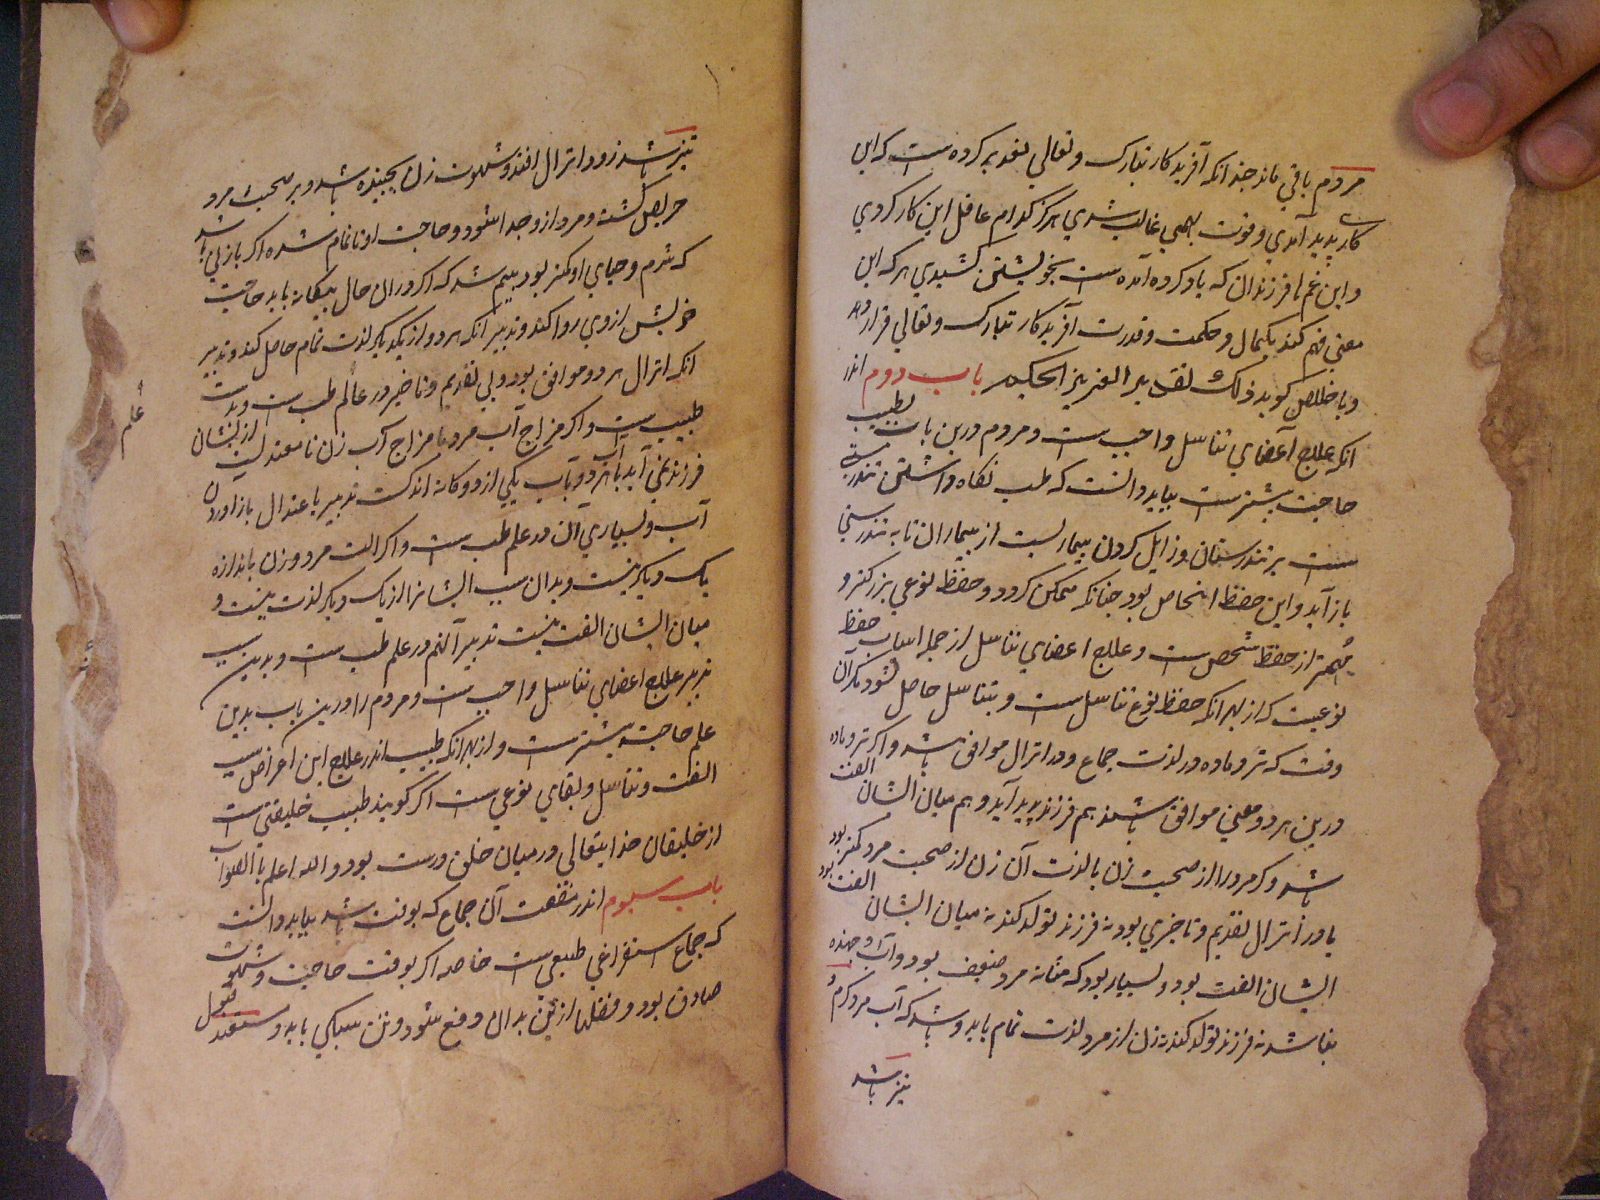 مردم باقي ماند چندانکه آفریدکار تبارک وتعالي تقدیر کرده است که این
کار پدید آمدي وقوت بهیمي غالب شدي هرکز کدام عاقل این کار کردي
واین غم با فرزندان که یاد کرده آمده است بخویشتن کشیدي هرکه این
معني فهم کند بکمال وحکمت وقدرت آفریدکار تبارک وتعالي قرار دهد
وباخلاص کوید ذلک تقدیر العزیز الحکیم باب دوم اندر
انکه علاج آعضاي تناسل واجب است ومردم درین باب بطبیب
حاجت بیشتر است بباید دانست که طب نکاه داشتن تندرستي
است بر تندرستان وزایل کردن بیماریست از بیماران تا به تندرستي
باز آید واین حفظ اشخاص بود چنانکه ممکن کردد وحفظ نوعي بزرکتر و
مهمتر از حفظ شخص است وعلاج اعضاي تناسل از جمله اسباب حفظ
نوعیست که از بهر انکه حفظ نوع تناسل است وتناسل حاصل نشود مکر آن
وقت که نر وماده در لذت جماع ودر انزال موافق باشد واکر نر وماده
درین هر دو معني موافق باشند هم فرزند پدید آید وهم میان ایشان الفت
باشد وکر مرد را از صحبت زن بالذت آن زن از صحبت مرد کمتر بود
یا در انزال تقدیم وتاخیري بود نه فرزند تولد کند نه میان ایشان الفت بود
ایشان الفت بود وبسیار بود که مثانه مرد ضعیف بود وآب او جهنده
نباشد نه فرزند تولد کند نه زن از مرد لذت تمام یابد وباشد که آب مرد کرم و
تیز باشد
تیز باشد زود انزال افتد وشهوت زن بجنبیده باشد وبر صحبت مرد
حریص کشته ومرد از وجدا شود وحاجت او ناتمام شده اکر باز ني باشد
که شرم وحیاي او کمتر بود بیم باشد که اکر در ان حال بیکانه یابد حاجت
خویش از وي روا کند وتدبیر انکه هر دو از یکدیکر لذت تمام حاصل کنند وتدبیر
انکه انزال هر دو موافق بود وبي تقدیم وتاخیر در عالم طب است وبدست
علم
طبیب است واکر مزاج آب مرد با مزاج آب زن نا معتدل از ایشان
فرزند نمي آید یا هر دو آب یا آب یکي از دو کانه اندکست تدبیر باعتدال باز اوردن
آب وبسیاري آن در علم طب است واکر الت مرد وزن باندازه
یک دیکر نیست وبدان سبب ایشانرا از یک دیکر لذت نیست و
میان ایشان الفت نیست تدبیر آنهم در علم طب است وبدین سبب
تدبیر علاج اعضاي تناسل واجب است ومردم را درین باب بدین
علم حاجت بیشتر است واز بهر انکه طبیب اندر علاج این امراض سبب
الفت وتناسل وبقاي نوعي است اکر کویند طبیب خلیفتي است
از خلیفتان خدایتعالي در میان خلق درست بود والله اعلم بالصواب
باب سیوم اندر منفعت آن جماع که بوقت باشد بباید دانست
که جماع استفراغي طبیعي است خاصه اکر بوقت حاجت وشهوت
صادق بود وفضلها از تن بدان دفع شود وتن سبکي یابد ومستعد قبول